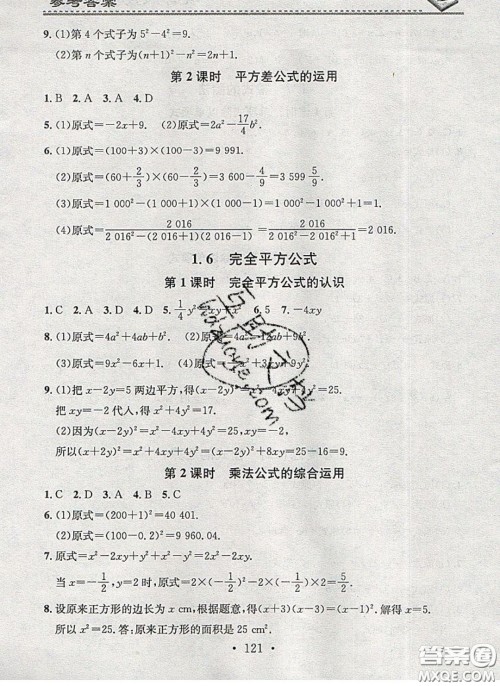 参考答案
9. (1)第 4 个式子为 5²－4²＝9.
(2)第 n 个式子为(n＋1)²－n²＝2n＋1.
第 2 课时 平方差公式的运用
1. B 2. A 3. A 4. D
5. (1)原式＝－2x＋9. (2)原式＝2a²－17/4 b².
6. (1)原式＝(100＋3)×(100－3)＝9 991.
(2)原式＝(60＋2/3)×(60－2/3)＝3 600－4/9＝3 599 5/9.
(3)原式＝1 000²－(1 000＋1)×(1 000－1)＝1 000²－1 000²＋1＝1.
(4)原式＝2 016/(2 016²－(2 016＋1)(2 016－1))＝2 016/(2 016²－2 016²＋1)＝2 016.
1. 6 完全平方公式
第 1 课时 完全平方公式的认识
1. C 2. D 3. C 4. D 5. 1/4 y² x² 6. 5 7. －4xy
8. (1)原式＝4a²＋4ab＋b². (2)原式＝4a² 4ab＋b².
(3)原式＝9x²－6x＋1. (4)原式＝ x²＋3xy＋9y².
9. (1)把 x－2y＝5 两边平方,得(x－2y)²＝x²－4xy＋4y²＝25.
把 xy＝－2 代入,得 x²＋4y²＝17.
(2)因为(x－2y)²＝x²－4xy＋4y²＝25,
所以(x＋2y)²＝(x－2y)²＋8xy＝25－16＝9.
第 2 课时 乘法公式的综合运用
1. C 2. D 3. A 4. B 5. C
6. (1)原式＝(200＋1)²＝40 401.
(2)原式＝(100－0.2)²＝9 960.04.
7. 原式＝x²－2xy＋y²＋xy－y²＝x²－xy.
当 x＝－1/2,y＝2 时,原式＝(－1/2)²－(－1/2)×2＝5/2.
8. 设原来正方形的边长为 x cm,根据题意,得(x＋3)²－x²＝39. 解得 x＝5.
所以 x²＝25. 答:原来正方形的面积是 25 cm².
· 121 ·
hazuoye.com
答案圈
MXQE.COM